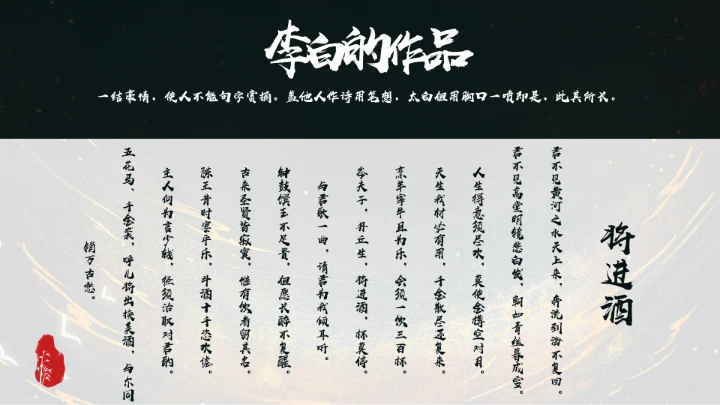 李白的作品
一结豪情，使人不能句字赏摘。盖他人作诗用笔想，太白但用胸口一喷即是，此其所长。
将进酒
君不见黄河之水天上来，奔流到海不复回。
君不见高堂明镜悲白发，朝如青丝暮成雪。
人生得意须尽欢，莫使金樽空对月。
天生我材必有用，千金散尽还复来。
烹羊宰牛且为乐，会须一饮三百杯。
岑夫子，丹丘生，将进酒，杯莫停。
与君歌一曲，请君为我倾耳听。
钟鼓馔玉不足贵，但愿长醉不复醒。
古来圣贤皆寂寞，惟有饮者留其名。
陈王昔时宴平乐，斗酒十千恣欢谑。
主人何为言少钱，径须沽取对君酌。
五花马、千金裘，呼儿将出换美酒，与尔同
销万古愁。